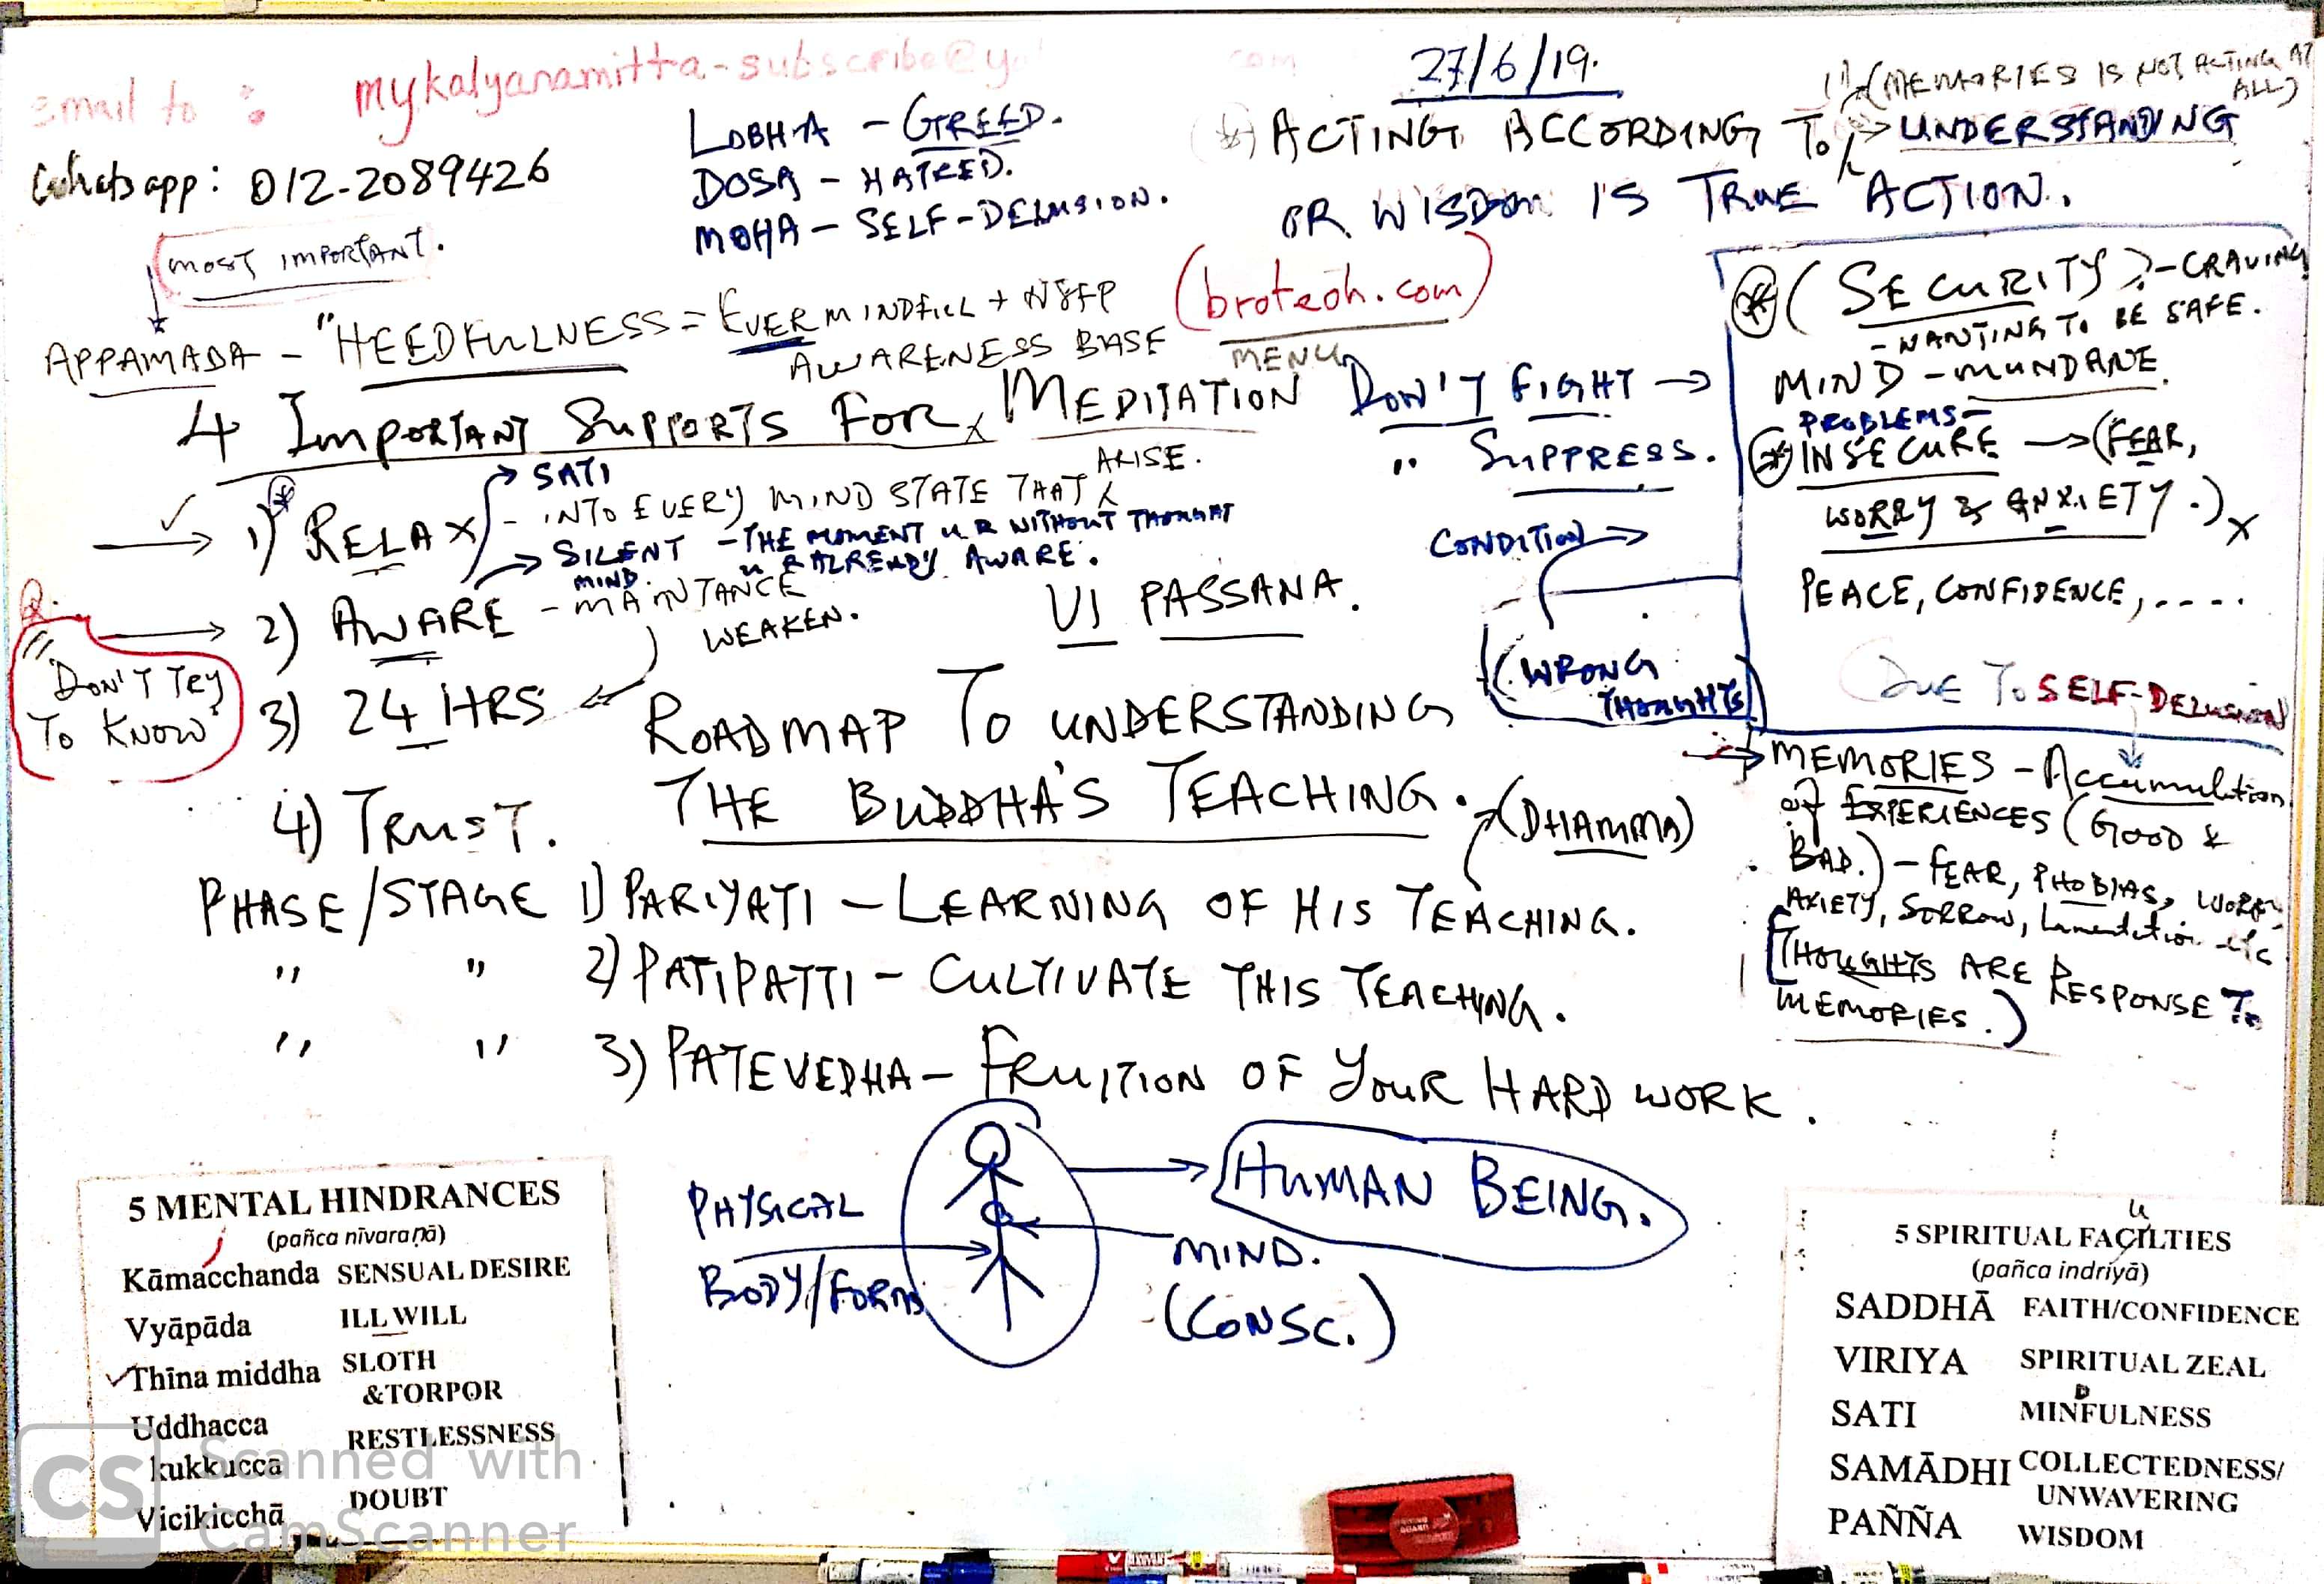 27/6/19.
Email to : mykalyanamitta-subscribe@y com
Whatsapp: 012-2089426
LOBHA - GREED.
DOSA - HATRED.
MOHA - SELF-DELUSION.
(MEMORIES IS NOT ACTING AT ALL)
ACTING ACCORDING TO UNDERSTANDING
OR WISDOM IS TRUE ACTION.
MOST IMPORTANT.
APPAMADA - "HEEDFULNESS = EVER MINDFUL +
AWARENESS BASE
(broteoh.com)
MENU
4 IMPORTANT SUPPORTS FOR MEDITATION
1) RELAX
SATI
- INTO EVERY MIND STATE THAT ARISE.
SILENT MIND. - THE MOMENT U R WITHOUT THOUGHT
U R ALREADY AWARE.
2) AWARE - MAINTANCE
WEAKEN.
3) 24 HRS
4) TRUST.
"DON'T TRY
TO KNOW"
VIPASSANA.
DON'T FIGHT
" SUPPRESS.
CONDITION
(WRONG
THOUGHTS)
(SECURITY) - CRAVING
- WANTING TO BE SAFE.
MIND - MUNDANE.
PROBLEMS -
INSECURE → (FEAR,
WORRY & ANXIETY.)
PEACE, CONFIDENCE, ....
DUE TO SELF-DELUSION
MEMORIES - Accumulation
of EXPERIENCES (GOOD &
BAD.) - FEAR, PHOBIAS, WORRY
AXIETY, SORROW, Lamentation etc
[THOUGHTS ARE RESPONSE TO
MEMORIES.)
ROADMAP TO UNDERSTANDING
THE BUDDHA'S TEACHING.
(DHAMMA)
PHASE/STAGE 1) PARIYATI - LEARNING OF HIS TEACHING.
" " 2) PATIPATTI - CULTIVATE THIS TEACHING.
" " 3) PATEVEDHA - FRUITION OF YOUR HARD WORK.
PHYSICAL
BODY/FORM
HUMAN BEING.
MIND.
(CONSC.)
5 MENTAL HINDRANCES
(pañca nīvaraṇā)
Kāmacchanda SENSUAL DESIRE
Vyāpāda ILL WILL
Thīna middha SLOTH
&TORPOR
Uddhacca
kukkucca RESTLESSNESS
Vicikicchā DOUBT
5 SPIRITUAL FACILTIES
u
(pañca indriyā)
SADDHĀ FAITH/CONFIDENCE
VIRIYA SPIRITUAL ZEAL
D
SATI MINFULNESS
SAMĀDHI COLLECTEDNESS/
UNWAVERING
PAÑÑA WISDOM
CS Scanned with
CamScanner